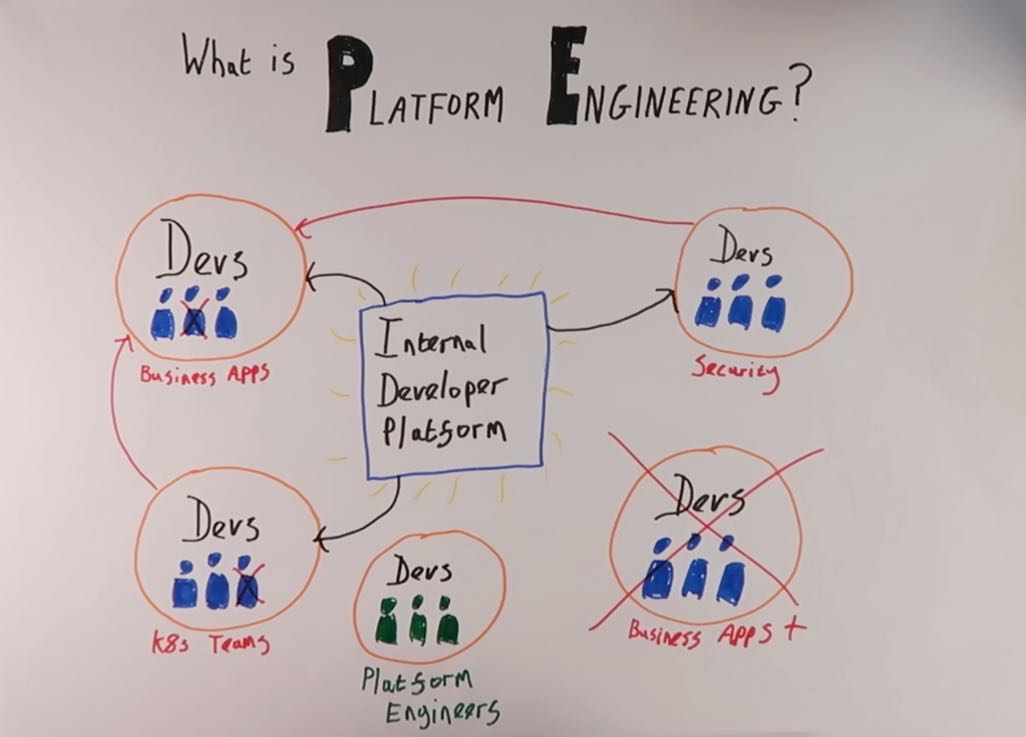 What is PLATFORM ENGINEERING?
Devs
Business Apps
Devs
Security
Internal
Developer
Platform
Devs
K8s Teams
Devs
Platform
Engineers
Devs
Business Apps +